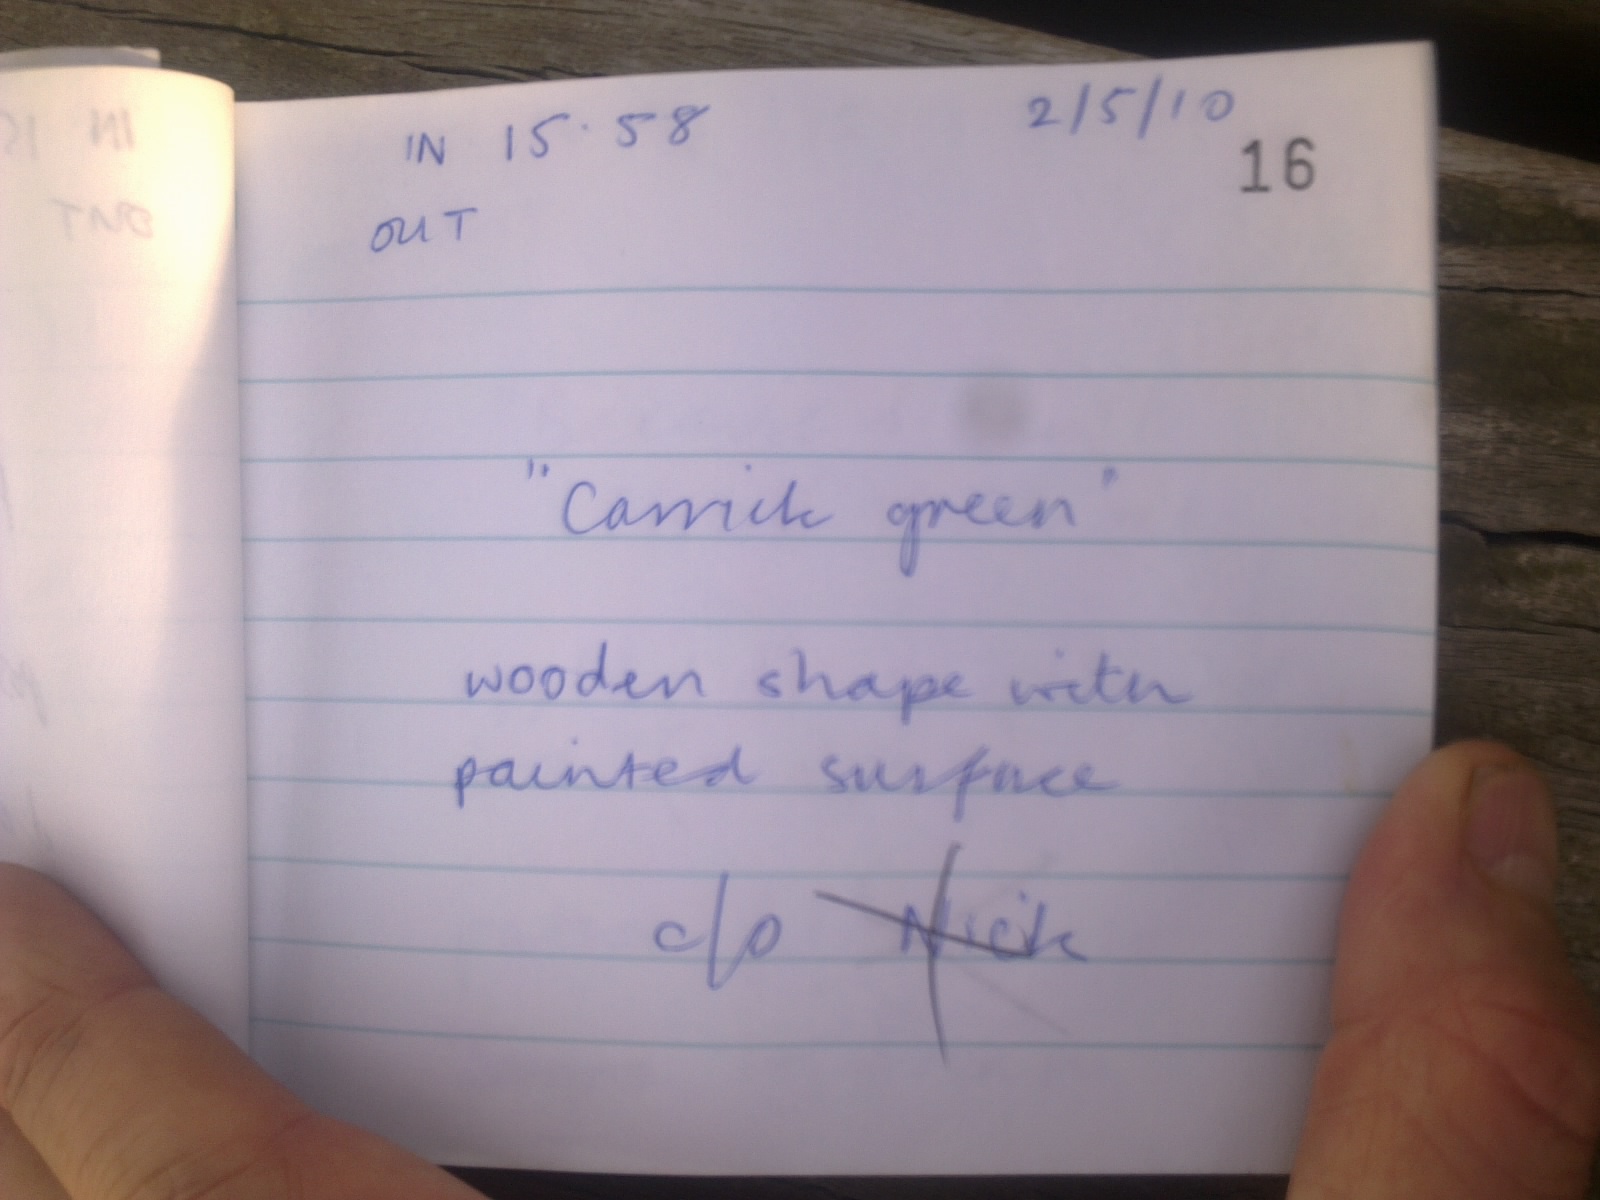 IN 15.58 2/5/10
16
OUT
"Carrick green"
wooden shape with
painted surface
c/o Nick
IN
OUT